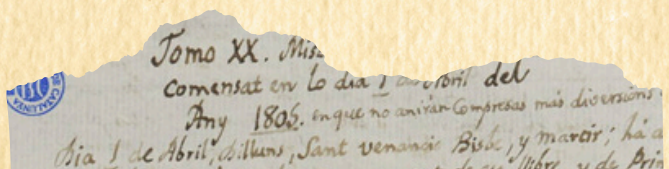 Tomo XX. Mis
Comensat en lo dia 1 de Abril del
Any 1805. en que no aniràn Compresas mas diversions
Dia 1 de Abril, Dilluns, Sant Venancio Bisbe, y martir; há
llibre, y de Prin
DE CATALUNYA